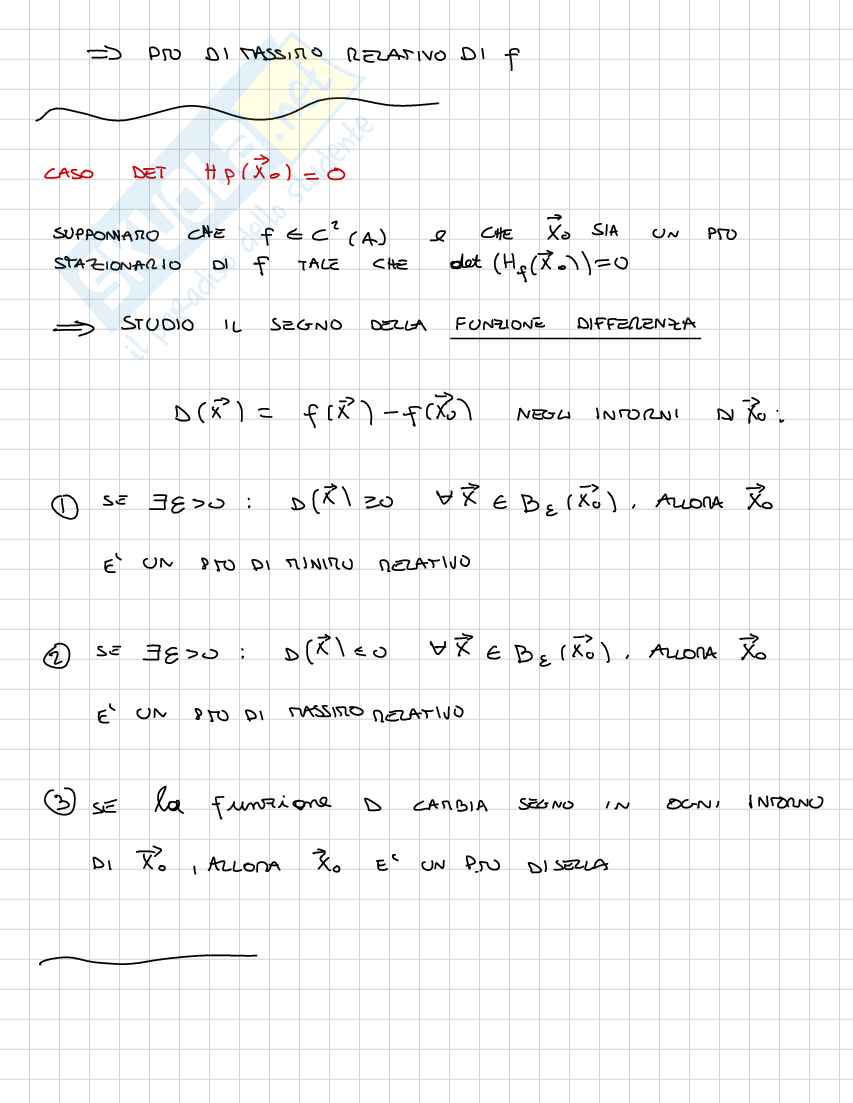 ⇒ PTO DI MASSIMO RELATIVO DI f
CASO DET Hf(x⃗₀) = 0
SUPPONIAMO CHE f ∈ C²(A) e CHE x⃗₀ SIA UN PTO
STAZIONARIO DI f TALE CHE det (Hf(x⃗₀))=0
⇒ STUDIO IL SEGNO DELLA FUNZIONE DIFFERENZA
D(x⃗) = f(x⃗) - f(x⃗₀) NEGLI INTORNI DI x⃗₀:
① SE ∃ε>0 : D(x⃗) ≥0 ∀x⃗ ∈ Bε(x⃗₀), ALLORA x⃗₀
E' UN PTO DI MINIMO RELATIVO
② SE ∃ε>0 : D(x⃗) ≤0 ∀x⃗ ∈ Bε(x⃗₀), ALLORA x⃗₀
E' UN PTO DI MASSIMO RELATIVO
③ SE la funzione D CAMBIA SEGNO IN OGNI INTORNO
DI x⃗₀, ALLORA x⃗₀ E' UN PTO DI SELLA
SKUOLA.net
il paradiso dello studente